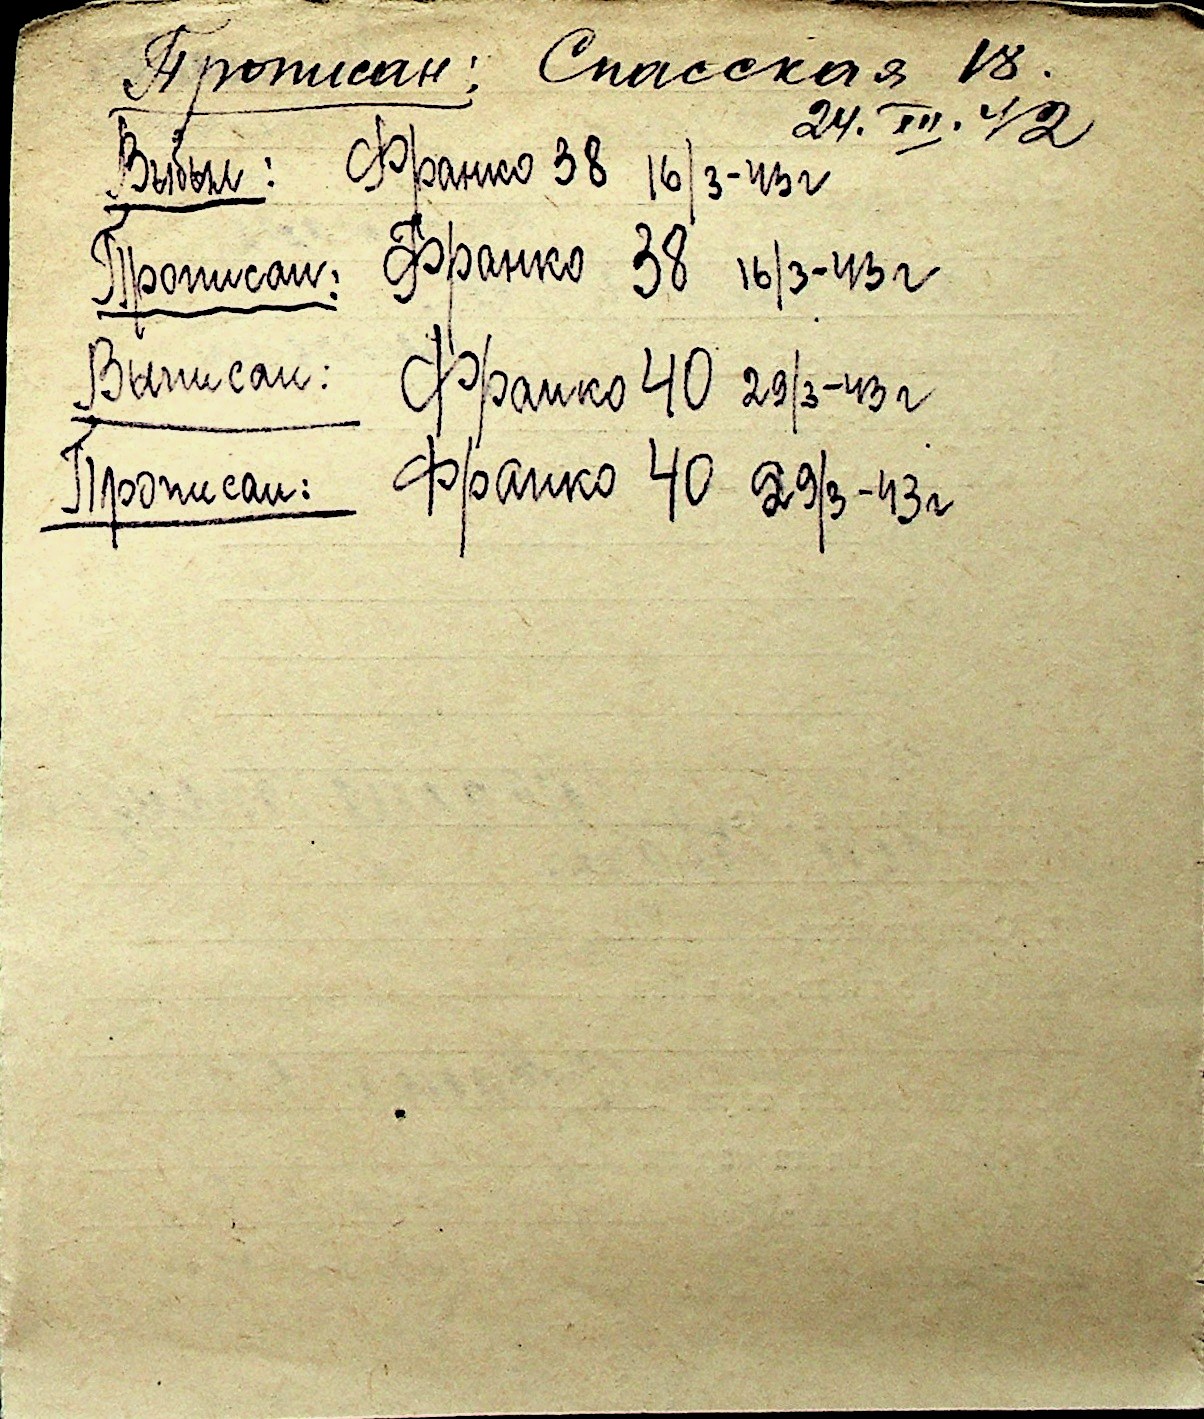 Прописан: Спасская 18.
24. XII. 42
Выбыл: Франко 38 16/3-43г
Прописан: Франко 38 16/3-43г
Выписан: Франко 40 29/3-43г
Прописан: Франко 40 29/3-43г